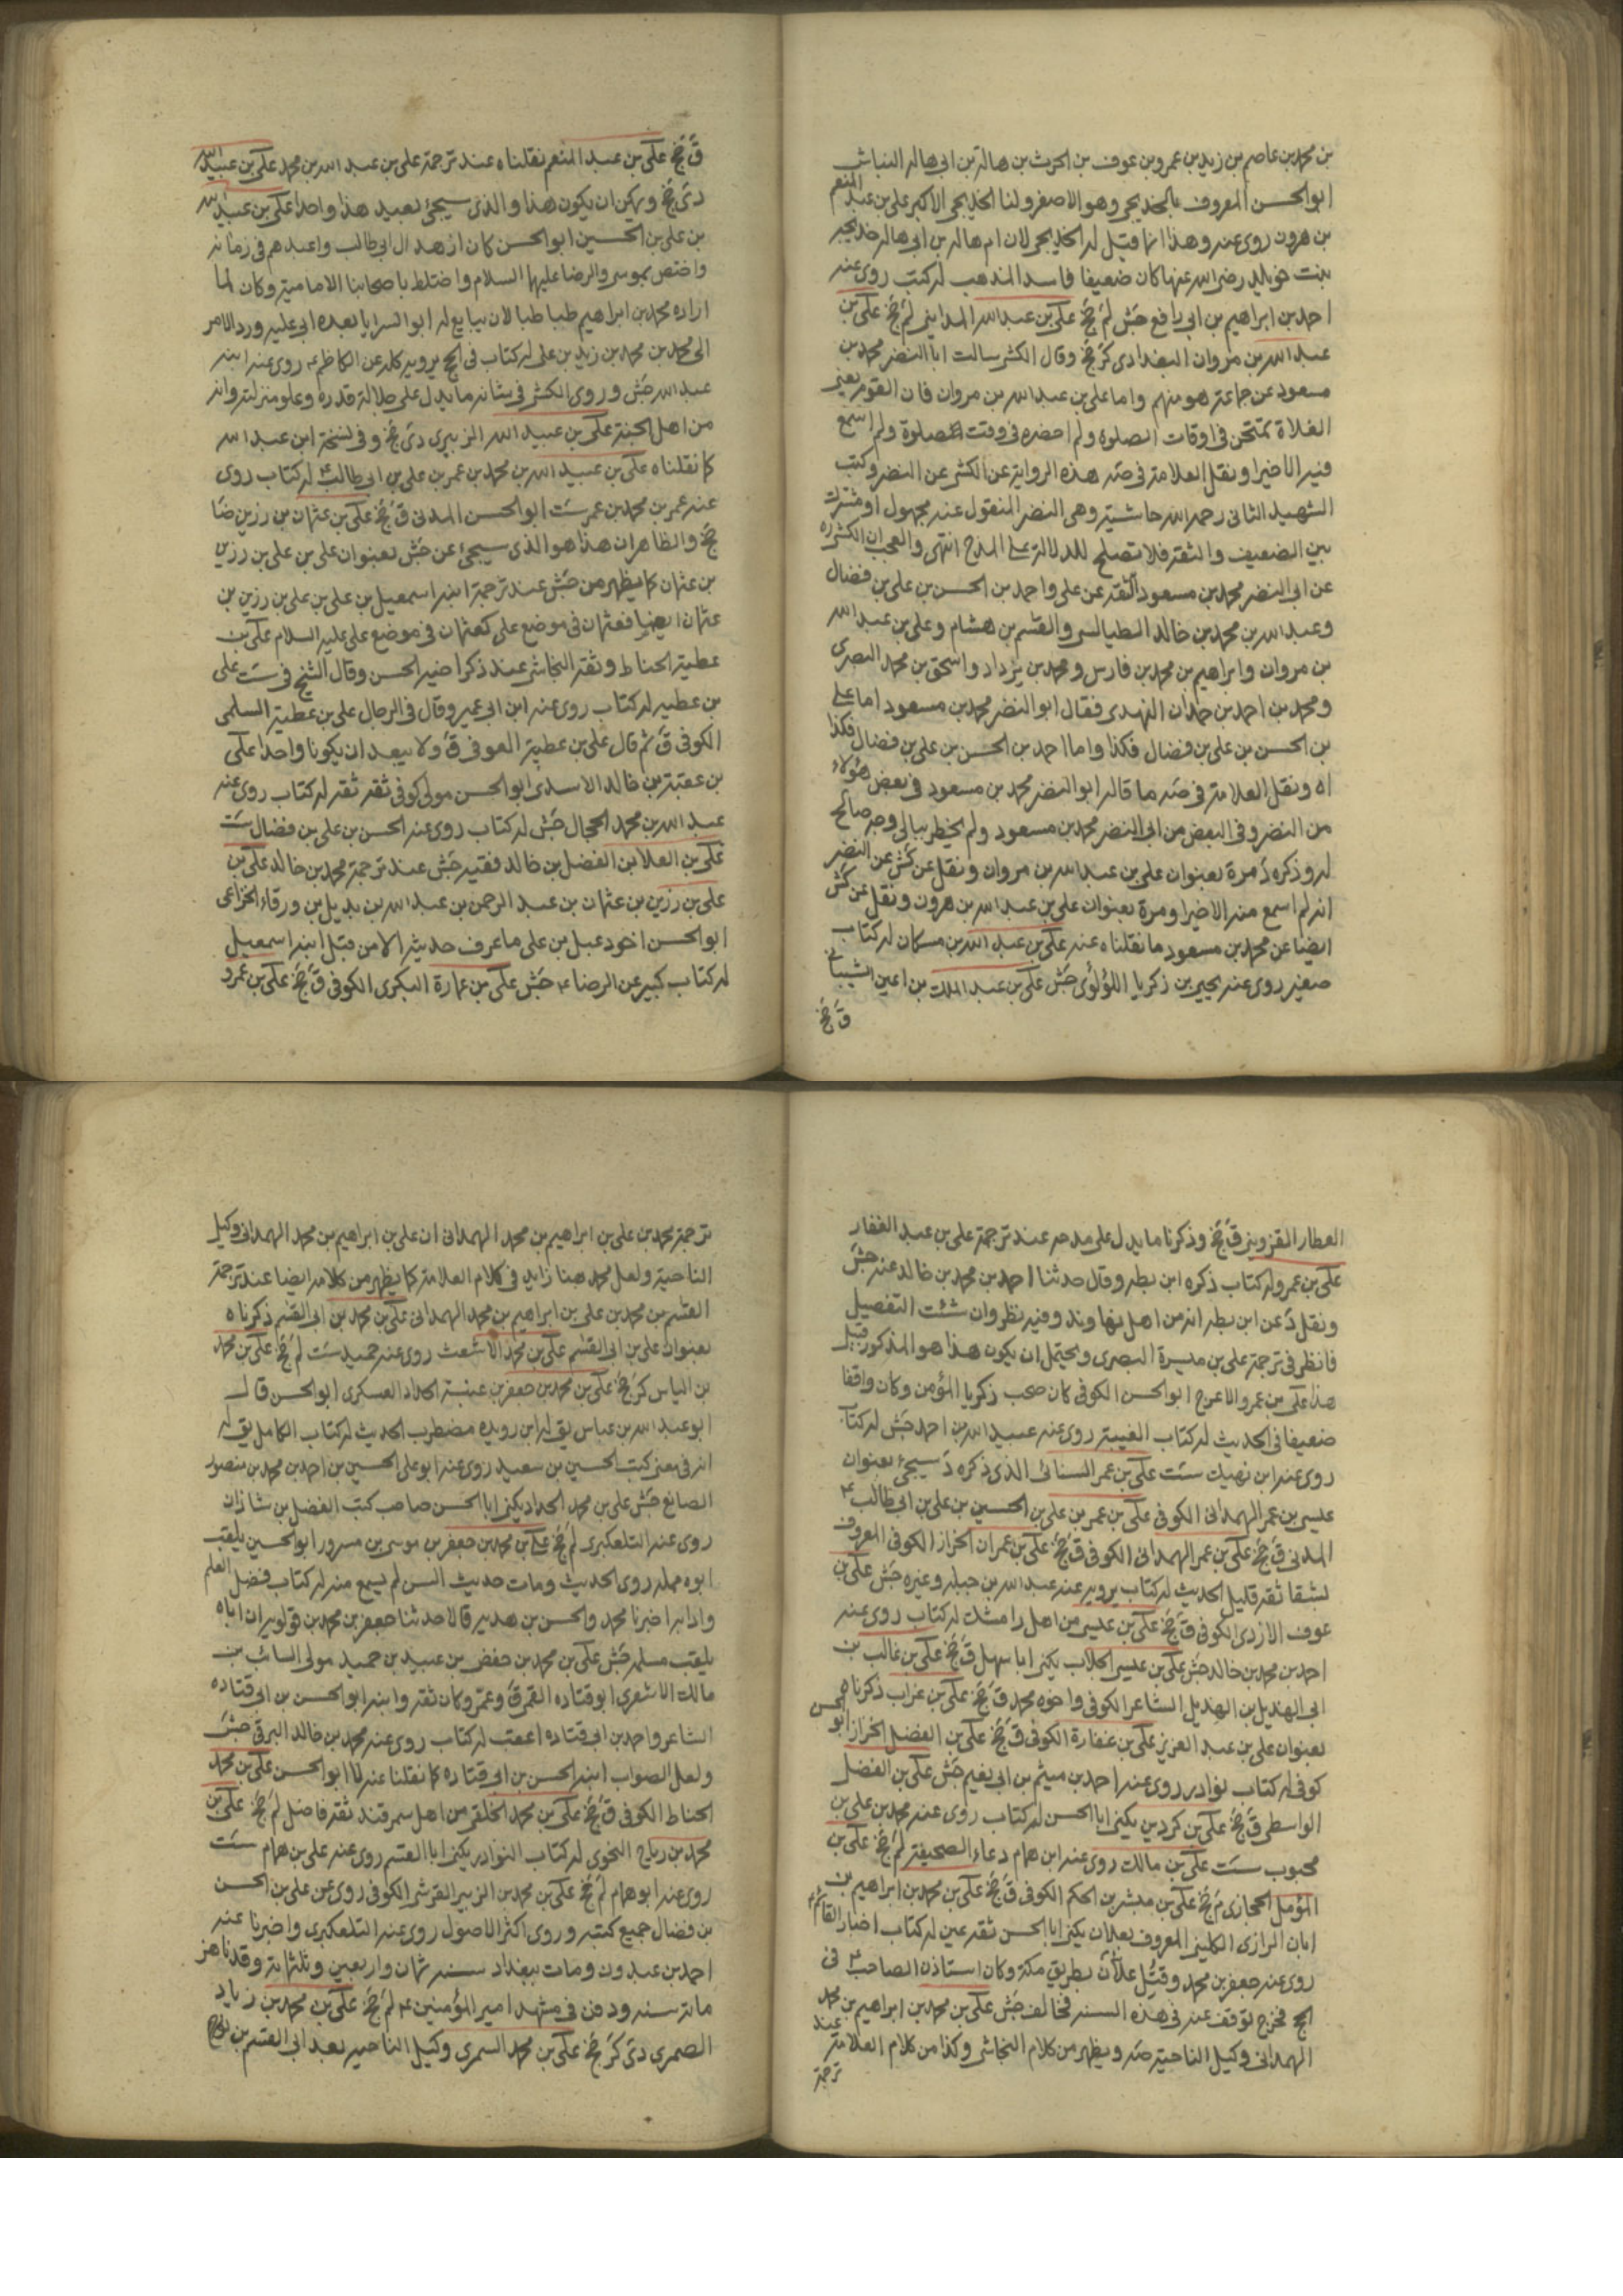 بن محمد بن عاصم بن زيد بن عمرو بن عوف بن الحرث بن هالة بن ابى هالة النباش
ابو الحسن المعروف بالخديجى وهو الاصغر ولنا الخديجى الاكبر على بن عبد المنعم
بن هرون روى عنه وهذا انما قيل له الخديجى لان ام هالة بن ابى هالة خديجة
بنت خويلد رضى الله عنها كان ضعيفا فاسد المذهب له كتب روى عنه
احمد بن ابراهيم بن ابى رافع جش لم جخ على بن عبد الله المداينى لم جخ على بن
عبد الله بن مروان البغدادى كر جخ وقال الكشى سالت ابا النضر محمد بن
مسعود عن جماعة هو منهم واما على بن عبد الله بن مروان فان القوم يعنى
الغلاة تمتحن فى اوقات الصلوة ولم احضره فى وقت الصلوة ولم اسمع
فيه الا خيرا ونقل العلامة فى صه هذه الرواية عن الكشى عن النضر وكتب
الشهيد الثانى رحمه الله حاشية وهى النضر المنقول عنه مجهول او مشترك
بين الضعيف والثقة فلا تصلح للدلالة على المدح انتهى والعجب ان الكشى ره
عن ابى النضر محمد بن مسعود الثقة عن على واحمد بن الحسن بن على بن فضال
وعبد الله بن محمد بن خالد الطيالسى والقسم بن هشام وعلى بن عبد الله
بن مروان وابراهيم بن محمد بن فارس ومحمد بن يزداد واسحق بن محمد البصرى
ومحمد بن احمد بن حمدان النهدى فقال ابو النضر محمد بن مسعود اما على
بن الحسن بن على بن فضال فكذا واما احمد بن الحسن بن على بن فضال فكذا
اه ونقل العلامة فى صه ما قاله ابو النضر محمد بن مسعود فى بعض هؤلاء
من النضر وفى البعض من ابى النضر محمد بن مسعود ولم يخطر ببالى وجه صالح
له وذكره د مرة بعنوان على بن عبد الله بن مروان ونقل عن كش عن النضر
انه لم اسمع منه الا خيرا ومرة بعنوان على بن عبد الله بن هرون ونقل عن كش
ايضا عن محمد بن مسعود ما نقلناه عنه على بن عبد الله بن مسكان له كتاب
صغير روى عنه يحيى بن زكريا اللؤلؤى جش على بن عبد الملك بن اعين الشيبانى
ق جخ
ق جخ على بن عبد المنعم نقلناه عند ترجمة على بن عبد الله بن محمد على بن عبيد الله
دى جخ ويمكن ان يكون هذا والذى سيجئ بعيد هذا واحدا على بن عبيد الله
بن على بن الحسين ابو الحسن كان ازهد ال ابى طالب واعبدهم فى زمانه
واختص بموسى والرضا عليهما السلام واختلط باصحابنا الامامية وكان لما
اراده محمد بن ابراهيم طباطبا لان يبايع له ابو السرايا بعده ابى عليه ورد الامر
الى محمد بن محمد بن زيد بن على له كتاب فى الحج يرويه كله عن الكاظم ع روى عنه ابنه
عبد الله جش وروى الكشى فى شانه ما يدل على جلالة قدره وعلو منزلته وانه
من اهل الجنة على بن عبيد الله الزبيرى دى جخ وفى نسخة ابن عبد الله
كما نقلناه على بن عبيد الله بن محمد بن عمر بن على بن ابى طالب ع له كتاب روى
عنه عمر بن محمد بن عمر ست ابو الحسن المدنى ق جخ على بن عثمان بن رزين ضا
جخ والظاهر ان هذا هو الذى سيجئ عن جش بعنوان على بن على بن رزين
بن عثمان كما يظهر من جش عند ترجمة ابنه اسمعيل بن على بن على بن رزين بن
عثمان ايضا فعثمان فى موضع على كعثمان فى موضع على عليه السلام على بن
عطية الحناط وثقه النجاشى عند ذكر اخيه الحسن وقال الشيخ فى ست على
بن عطيه له كتاب روى عنه ابن ابى عمير وقال فى الرجال على بن عطية السلمى
الكوفى ق ثم قال على بن عطية العوفى ق ولا يبعد ان يكونا واحدا على
بن عقبة بن خالد الاسدى ابو الحسن مولى كوفى ثقة ثقة له كتاب روى عنه
عبد الله بن محمد الحجال جش له كتاب روى عنه الحسن بن على بن فضال ست
على بن العلا بن الفضل بن خالد فقيه جش عند ترجمة محمد بن خالد على بن
على بن رزين بن عثمان بن عبد الرحمن بن عبد الله بن بديل بن ورقاء الخزاعى
ابو الحسن اخو دعبل بن على ما عرف حديثه الا من قبل ابنه اسمعيل
له كتاب كبير عن الرضا ع جش على بن عمارة البكرى الكوفى ق جخ على بن عمرو
العطار القزوينى ق جخ وذكرنا ما يدل على مدحه عند ترجمة على بن عبد الغفار
على بن عمرو له كتاب ذكره ابن بطه وقال حدثنا احمد بن محمد بن خالد عنه جش
ونقل د عن ابن بطه انه من اهل نهاوند وفيه نظر وان شئت التفصيل
فانظر فى ترجمة على بن ميسرة البصرى ويحتمل ان يكون هذا هو المذكور قبل
هذا على بن عمرو الاعرج ابو الحسن الكوفى كان صحب زكريا المؤمن وكان واقفا
ضعيفا فى الحديث له كتاب الغيبة روى عنه عبيد الله بن احمد جش له كتاب
روى عنه ابن نهيك ست على بن عمر السنائى الذى ذكره د سيجئ بعنوان
عليسى بن عمر الهمدانى الكوفى على بن عمر بن على بن الحسين بن على بن ابى طالب ع
المدنى ق جخ على بن عمر الهمدانى الكوفى ق جخ على بن عمران الخزاز الكوفى المعروف
بشقا ثقة قليل الحديث له كتاب يرويه عنه عبد الله بن جبلة وغيره جش على بن
عوف الازدى الكوفى ق جخ على بن عيسى من اهل رامشك له كتاب روى عنه
احمد بن محمد بن خالد جش على بن عيسى الجلاب يكنى ابا سهل ق جخ على بن غالب بن
ابى الهذيل بن الهذيل الشاعر الكوفى واخوه محمد ق جخ على بن غراب ذكرناه
بعنوان على بن عبد العزيز على بن غفارة الكوفى ق جخ على بن الفضل الخزاز ابو الحسن
كوفى له كتاب نوادر روى عنه احمد بن ميثم بن ابى نعيم جش على بن الفضل
الواسطى ق جخ على بن كردين يكنى ابا الحسن له كتاب روى عنه محمد بن على بن
محبوب ست على بن مالك روى عنه ابن همام دعاء الصحيفة لم جخ على بن
المؤمل الحجازى م جخ على بن مبشر بن الحكم الكوفى ق جخ على بن محمد بن ابراهيم بن
ابان الرازى الكلينى المعروف بعلان يكنى ابا الحسن ثقة عين له كتاب اخبار القائم ع
روى عنه جعفر بن محمد وقتل علان بطريق مكة وكان استاذن الصاحب ع فى
الحج فخرج توقف عنه فى هذه السنة فخالف جش على بن محمد بن ابراهيم بن محمد
الهمدانى وكيل الناحية صه ويظهر من كلام النجاشى وكذا من كلام العلامة عند
ترجمة
ترجمة محمد بن على بن ابراهيم بن محمد الهمدانى ان على بن ابراهيم بن محمد الهمدانى وكيل
الناحية ولعل محمد هنا زايد فى كلام العلامة كما يظهر من كلامه ايضا عند ترجمة
القسم بن محمد بن على بن ابراهيم بن محمد الهمدانى على بن محمد بن ابى القسم ذكرناه
بعنوان على بن ابى القسم على بن محمد الاشعث روى عنه حميد ست لم جخ على بن محمد
بن الياس كر جخ على بن محمد بن جعفر بن عنبسة الحداد العسكرى ابو الحسن قال
ابو عبد الله بن عياش يق له ابن رويده مضطرب الحديث له كتاب الكامل يق له
انه فى معنى كتب الحسين بن سعيد روى عنه ابو على الحسين بن احمد بن محمد بن منصور
الصائغ جش على بن محمد الحداد يكنى ابا الحسن صاحب كتب الفضل بن شاذان
روى عنه التلعكبرى لم جخ على بن محمد بن جعفر بن موسى بن مسرور ابو الحسين يلقب
ابوه مملة روى الحديث ومات حديث السن لم يسمع منه له كتاب فضل العلم
وادابه اخبرنا محمد والحسن بن هدية قالا حدثنا جعفر بن محمد بن قولويه ان اباه
يلقب مسلمة جش على بن محمد بن حفص بن عبيد بن حميد مولى السائب بن
مالك الاشعرى ابو قتاده القمى ق وعمر وكان ثقة وابنه ابو الحسن بن ابى قتاده
الشاعر واحمد بن ابى قتاده اعقب له كتاب روى عنه محمد بن خالد البرقى جش
ولعل الصواب ابنه الحسن بن ابى قتاده كما نقلنا عنه لا ابو الحسن على بن محمد
الحناط الكوفى ق جخ على بن محمد الخلقى من اهل سمرقند ثقة فاضل لم جخ على بن
محمد بن رياح النحوى له كتاب النوادر يكنى ابا القسم روى عنه على بن همام ست
روى عنه ابو همام لم جخ على بن محمد بن الزبير القرشى الكوفى روى عن على بن الحسن
بن فضال جميع كتبه وروى اكثر الاصول روى عنه التلعكبرى واخبرنا عنه
احمد بن عبدون ومات ببغداد سنة ثمان واربعين وثلثمائة وقد ناهز
مائة سنة ودفن فى مشهد امير المؤمنين ع لم جخ على بن محمد بن زياد
الصمرى دى كر جخ على بن محمد السمرى وكيل الناحية بعد ابى القسم بن روح